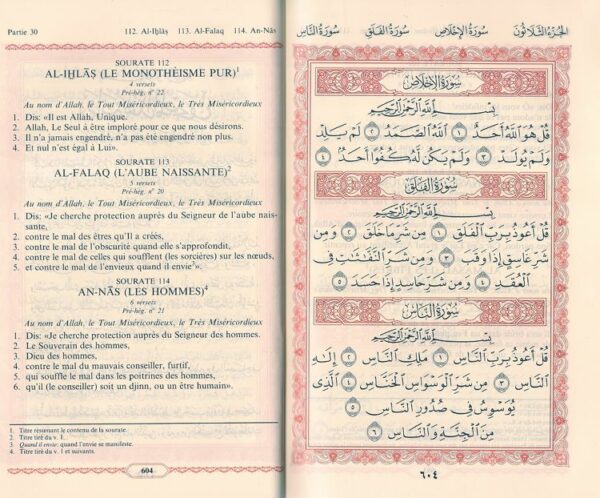 Partie 30 112. Al-Iḫlāṣ 113. Al-Falaq 114. An-Nās
SOURATE 112
AL-IḪLĀṢ (LE MONOTHÉISME PUR)¹
4 versets
Pré-hég. n° 22
Au nom d'Allah, le Tout Miséricordieux, le Très Miséricordieux
1. Dis: «Il est Allah, Unique.
2. Allah, Le Seul à être imploré pour ce que nous désirons.
3. Il n'a jamais engendré, n'a pas été engendré non plus.
4. Et nul n'est égal à Lui».
SOURATE 113
AL-FALAQ (L'AUBE NAISSANTE)²
5 versets
Pré-hég. n° 20
Au nom d'Allah, le Tout Miséricordieux, le Très Miséricordieux
1. Dis: «Je cherche protection auprès du Seigneur de l'aube nais-
sante,
2. contre le mal des êtres qu'Il a créés,
3. contre le mal de l'obscurité quand elle s'approfondit,
4. contre le mal de celles qui soufflent (les sorcières) sur les nœuds,
5. et contre le mal de l'envieux quand il envie³».
SOURATE 114
AN-NĀS (LES HOMMES)⁴
6 versets
Pré-hég. n° 21
Au nom d'Allah, le Tout Miséricordieux, le Très Miséricordieux
1. Dis: «Je cherche protection auprès du Seigneur des hommes.
2. Le Souverain des hommes,
3. Dieu des hommes,
4. contre le mal du mauvais conseiller, furtif,
5. qui souffle le mal dans les poitrines des hommes,
6. qu'il (le conseiller) soit un djinn, ou un être humain».
1. Titre résumant le contenu de la sourate.
2. Titre tiré du v. 1.
3. Quand il envie: quand l'envie se manifeste.
4. Titre tiré du v. 1 et suivants.
604
الجزء الثلاثون سورة الإخلاص سورة الفلق سورة الناس
سُورَةُ الإِخْلَاصِ
بِسْمِ اللَّهِ الرَّحْمَٰنِ الرَّحِيمِ
قُلْ هُوَ اللَّهُ أَحَدٌ ١ اللَّهُ الصَّمَدُ ٢ لَمْ يَلِدْ
وَلَمْ يُولَدْ ٣ وَلَمْ يَكُن لَّهُ كُفُوًا أَحَدٌ ٤
سُورَةُ الْفَلَقِ
بِسْمِ اللَّهِ الرَّحْمَٰنِ الرَّحِيمِ
قُلْ أَعُوذُ بِرَبِّ الْفَلَقِ ١ مِن شَرِّ مَا خَلَقَ ٢ وَمِن
شَرِّ غَاسِقٍ إِذَا وَقَبَ ٣ وَمِن شَرِّ النَّفَّٰثَٰتِ فِى
الْعُقَدِ ٤ وَمِن شَرِّ حَاسِدٍ إِذَا حَسَدَ ٥
سُورَةُ النَّاسِ
بِسْمِ اللَّهِ الرَّحْمَٰنِ الرَّحِيمِ
قُلْ أَعُوذُ بِرَبِّ النَّاسِ ١ مَلِكِ النَّاسِ ٢ إِلَٰهِ
النَّاسِ ٣ مِن شَرِّ الْوَسْوَاسِ الْخَنَّاسِ ٤ الَّذِى
يُوَسْوِسُ فِى صُدُورِ النَّاسِ ٥
مِنَ الْجِنَّةِ وَالنَّاسِ ٦
٦٠٤